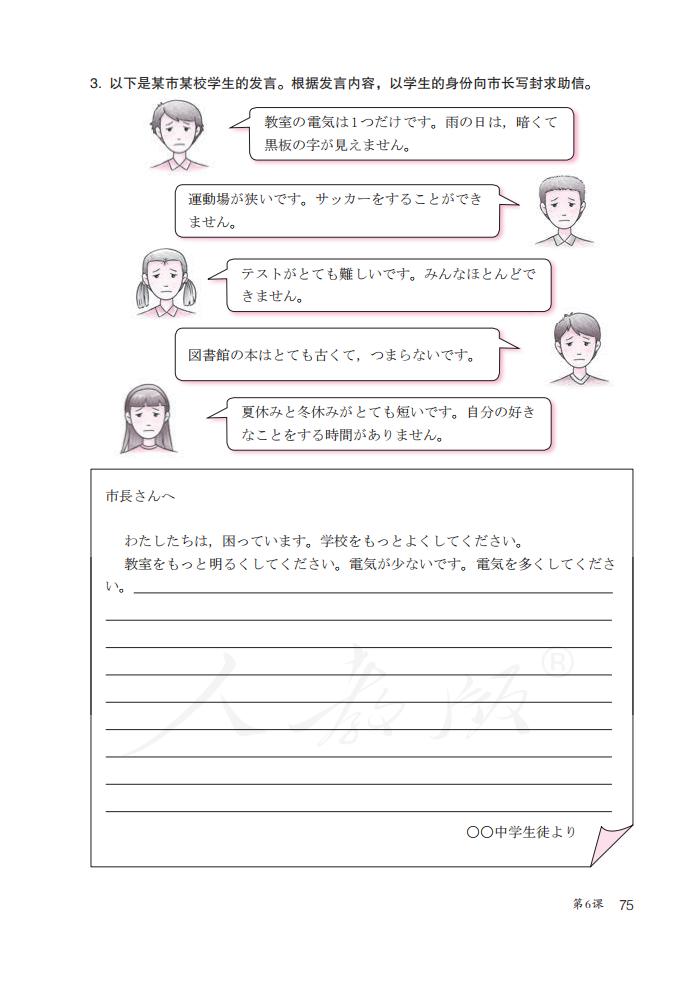 3. 以下是某市某校学生的发言。根据发言内容，以学生的身份向市长写封求助信。
教室の電気は1つだけです。雨の日は，暗くて
黒板の字が見えません。
運動場が狭いです。サッカーをすることができ
ません。
テストがとても難しいです。みんなほとんどで
きません。
図書館の本はとても古くて，つまらないです。
夏休みと冬休みがとても短いです。自分の好き
なことをする時間がありません。
市長さんへ
わたしたちは，困っています。学校をもっとよくしてください。
教室をもっと明るくしてください。電気が少ないです。電気を多くしてくださ
い。
人教版®
〇〇中学生徒より
第6课 75